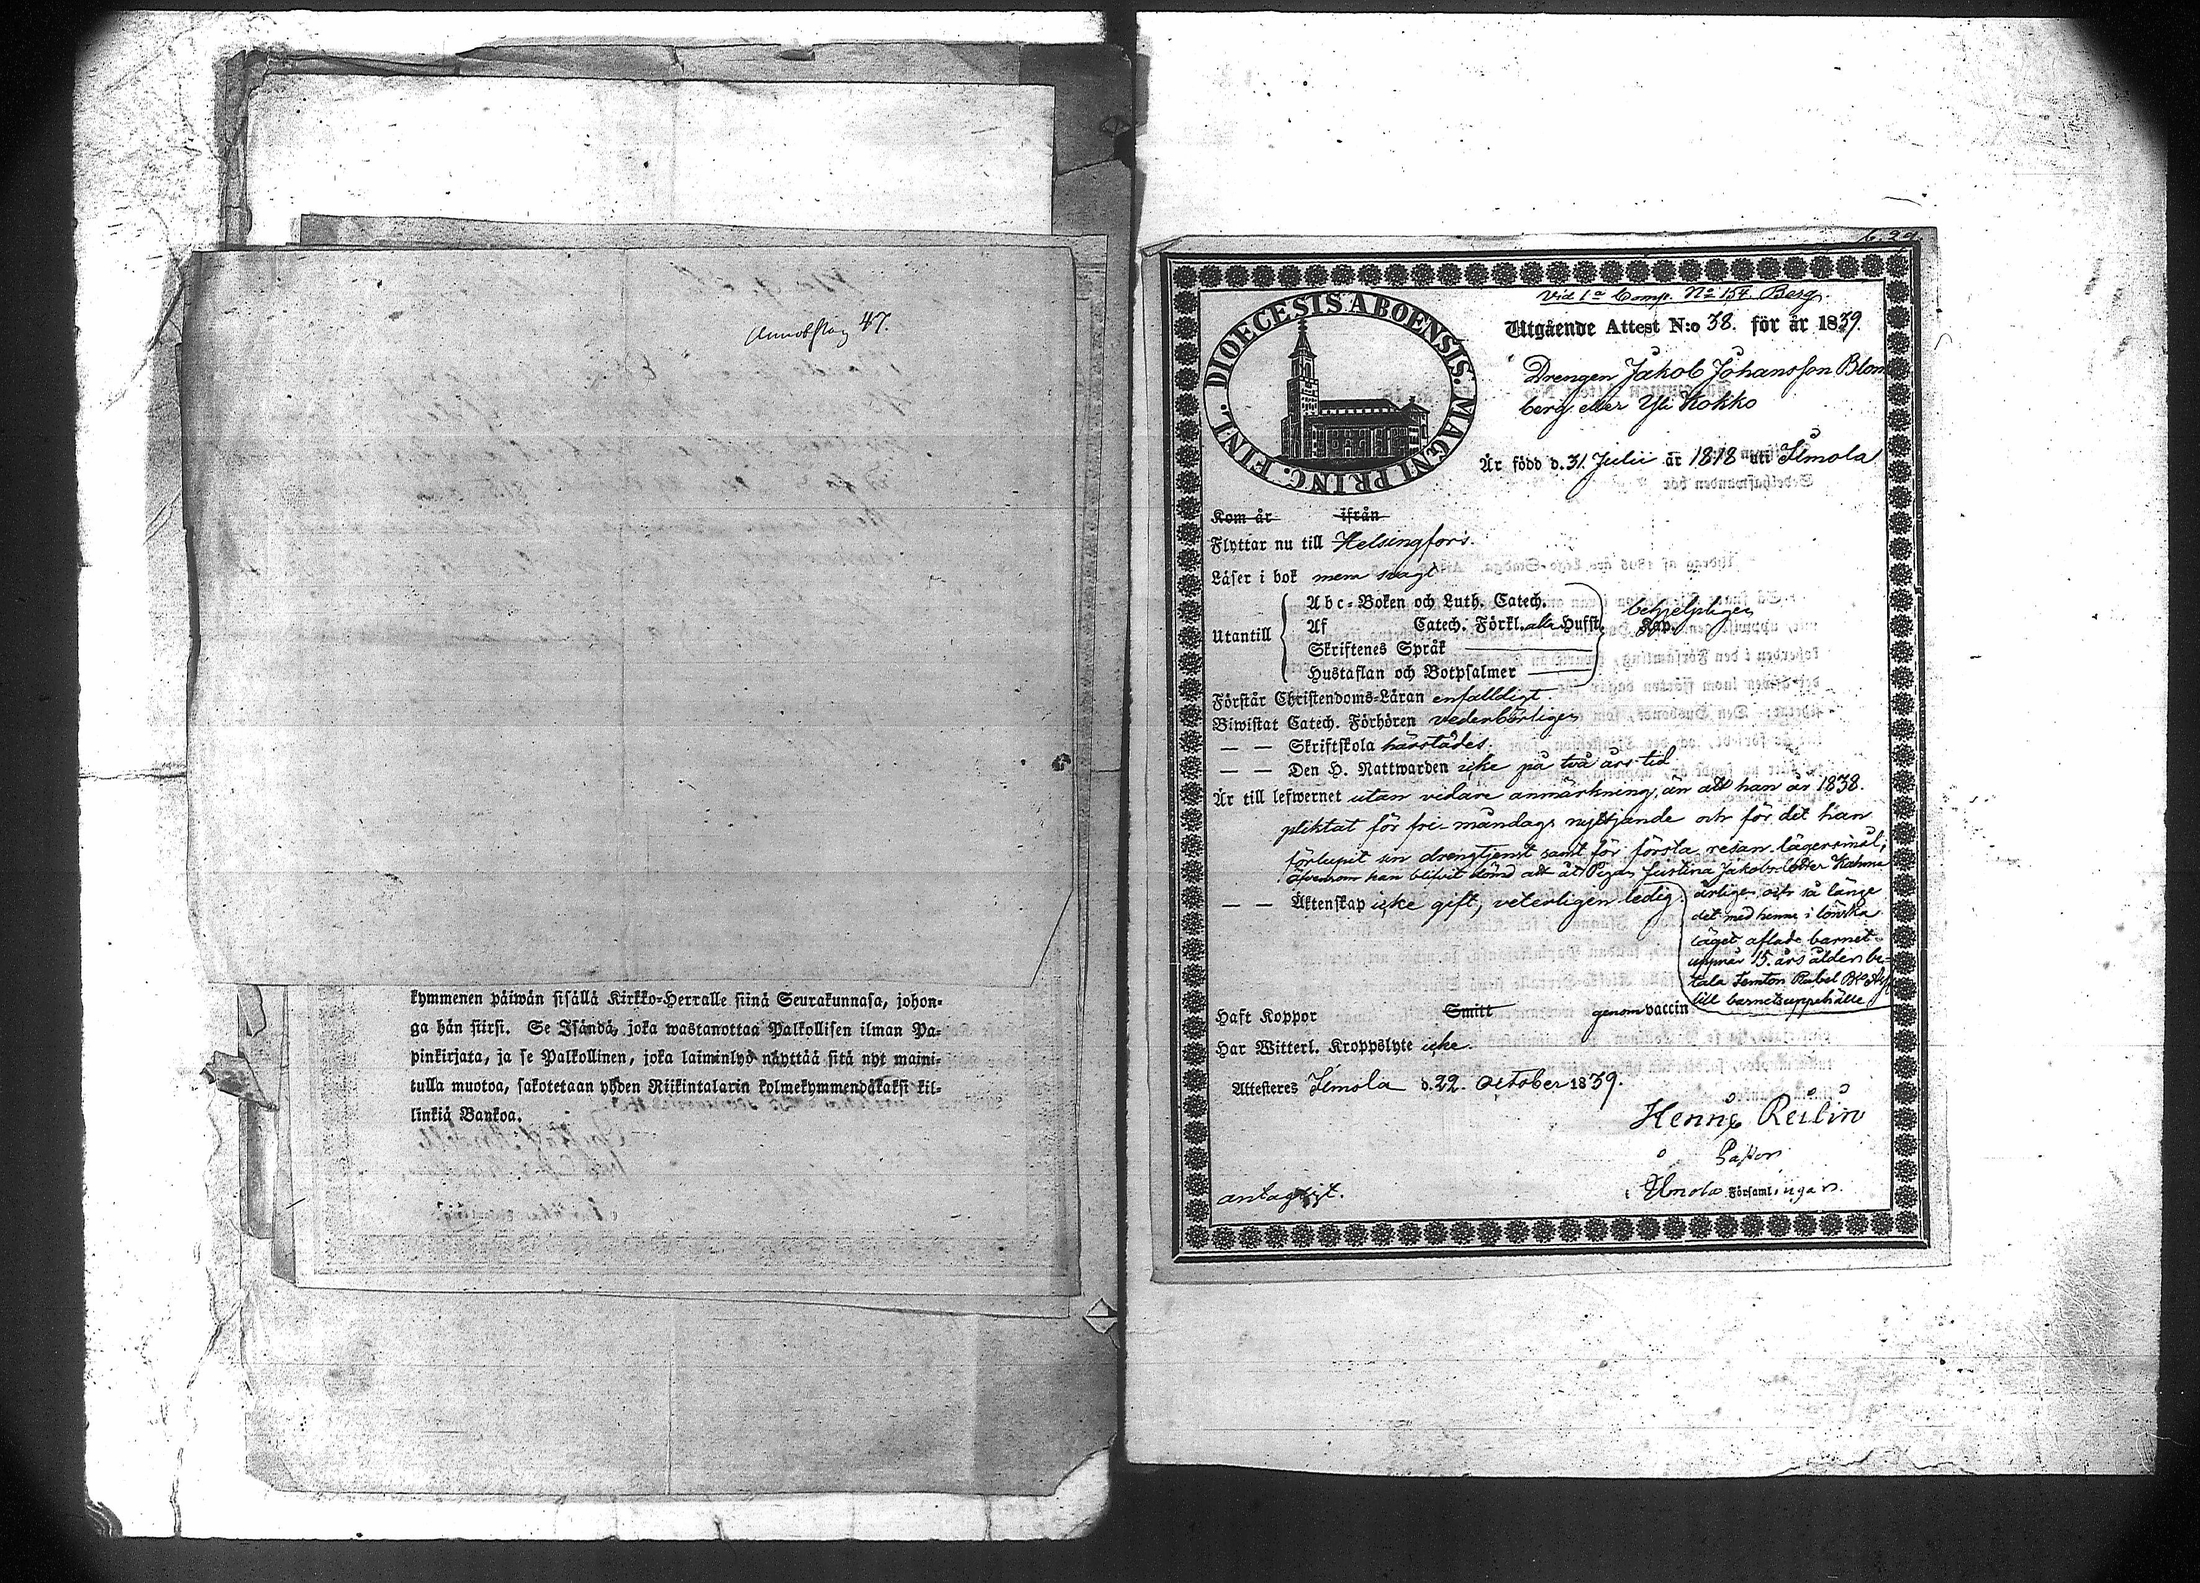 47.
kymmenen päiwän sisällä Kirkko-Herralle siinä Seurakunnasa, johon-
ga hän siirsi. Se Isändä, joka wastanottaa Palkollisen ilman Pa-
pinkirjata, ja se Palkollinen, joka laiminlyö näyttää sitä nyt maini-
tulla muotoa, sakotetaan yhden Riikintalarin kolmekymmendäkaksi kil-
linkiä Bankoa.
b. 29.
Vid 1a Comp. No 154. Berg.
DIOECESIS ABOENSIS. MAGNI PRINC. FINL.
Utgående Attest N:o 38. för år 1839.
Drengen Jakob Johansson Blom
berg eller Yli Kokko
Är född d. 31. Julii år 1818 uti Ilmola
Kom år ifrån
Flyttar nu till Helsingfors.
Läser i bok mera svagt
Utantill
Abc-Boken och Luth. Catech.
Af Catech. Förkl. alla Hufst. Kap.
behjelpligen
Skriftenes Språk
Hustaflan och Botpsalmer
Förstår Christendoms-Läran enfalldigt
Biwistat Catech. Förhören vederbörligen
— — Skriftskola härstädes.
— — Den H. Nattwarden icke på två års tid
Är till lefwernet utan vidare anmärkning, än att han år 1838.
pliktat för fri-måndags nyttjande och för det han
förlupit sin drengtjenst samt för första resan lägersmål;
äfvensom han blifvit dömd att åt Pigan Justina Jakobsdotter
— — Äktenskap icke gift, veterligen ledig.
årligen och så länge
det med henne i lönska
läget aflade barnet
uppnår 15. års ålder be-
tala femton Rubel
till barnets uppehälle
Haft Koppor Smitt genom vaccin
Har Witterl. Kroppslyte icke.
Attesteres Ilmola d. 22. October 1839.
Henric Reilin
Pastor
i Ilmola Församlingar.
antagligt.